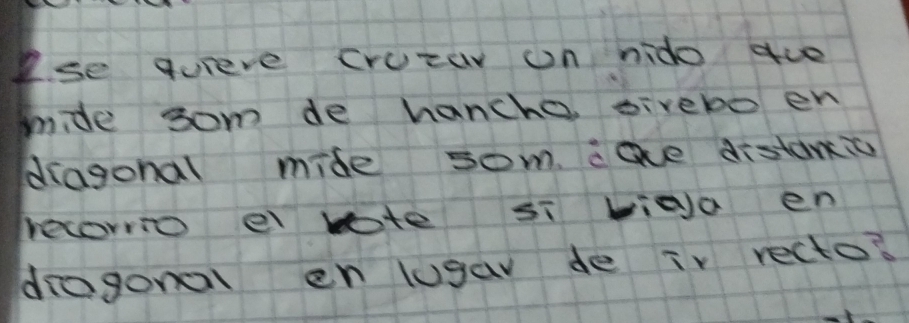 2. se quiere cruzar un nido que
mide 30m de hancho, sirebo en
diagonal mide 50m. ¿Que distancia
recorrio el bote si viaja en
diagonal en lugar de ir recto?